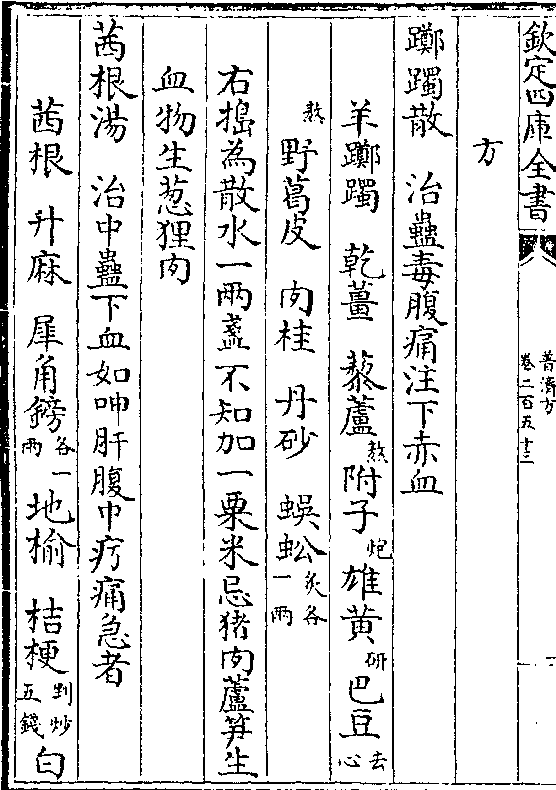 欽定四庫全書
普濟方
卷二百五十三
方
躑躅散　治蠱毒腹痛注下赤血
羊躑躅　乾薑　藜蘆熬附子炮雄黄研巴豆去心
熬野葛皮　肉桂　丹砂　蜈蚣炙各一兩
右搗為散水一兩盞不知加一粟米忌猪肉蘆笋生
血物生葱狸肉
茜根湯　治中蠱下血如呷肝腹中疞痛急者
茜根　升麻　犀角鎊各一兩地榆　桔梗剉炒五錢白